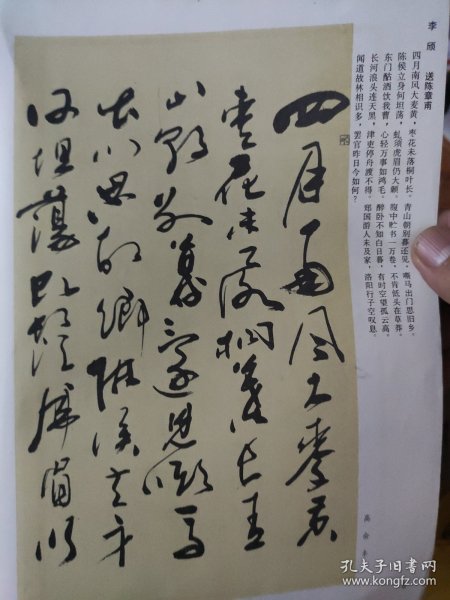 李颀　送陈章甫
四月南风大麦黄，枣花未落桐叶长。青山朝别暮还见，嘶马出门思旧乡。
陈侯立身何坦荡，虬须虎眉仍大颡。腹中贮书一万卷，不肯低头在草莽。
东门酤酒饮我曹，心轻万事如鸿毛。醉卧不知白日暮，有时空望孤云高。
长河浪头连天黑，津吏停舟渡不得。郑国游人未及家，洛阳行子空叹息。
闻道故林相识多，罢官昨日今如何？
四月南風大麥黃
棗花未落桐葉長青
山朝別暮還見嘶馬
出門思故鄉陳侯立身
何坦蕩虬鬚虎眉仍
孔夫子旧书网
www.kongfz.com